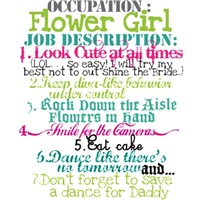 OCCUPATION:
Flower Girl
JOB DESCRIPTION:
1. Look Cute at all times
(LOL... so easy! I will try my
best not to out shine the Bride.)
2. Keep diva-like behavior
under control
3. Rock Down the Aisle
Flowers in hand
4. Smile for the Cameras
5. Eat cake
6. Dance like there's
no tomorrow and...
7. Don't forget to Save
a dance for Daddy